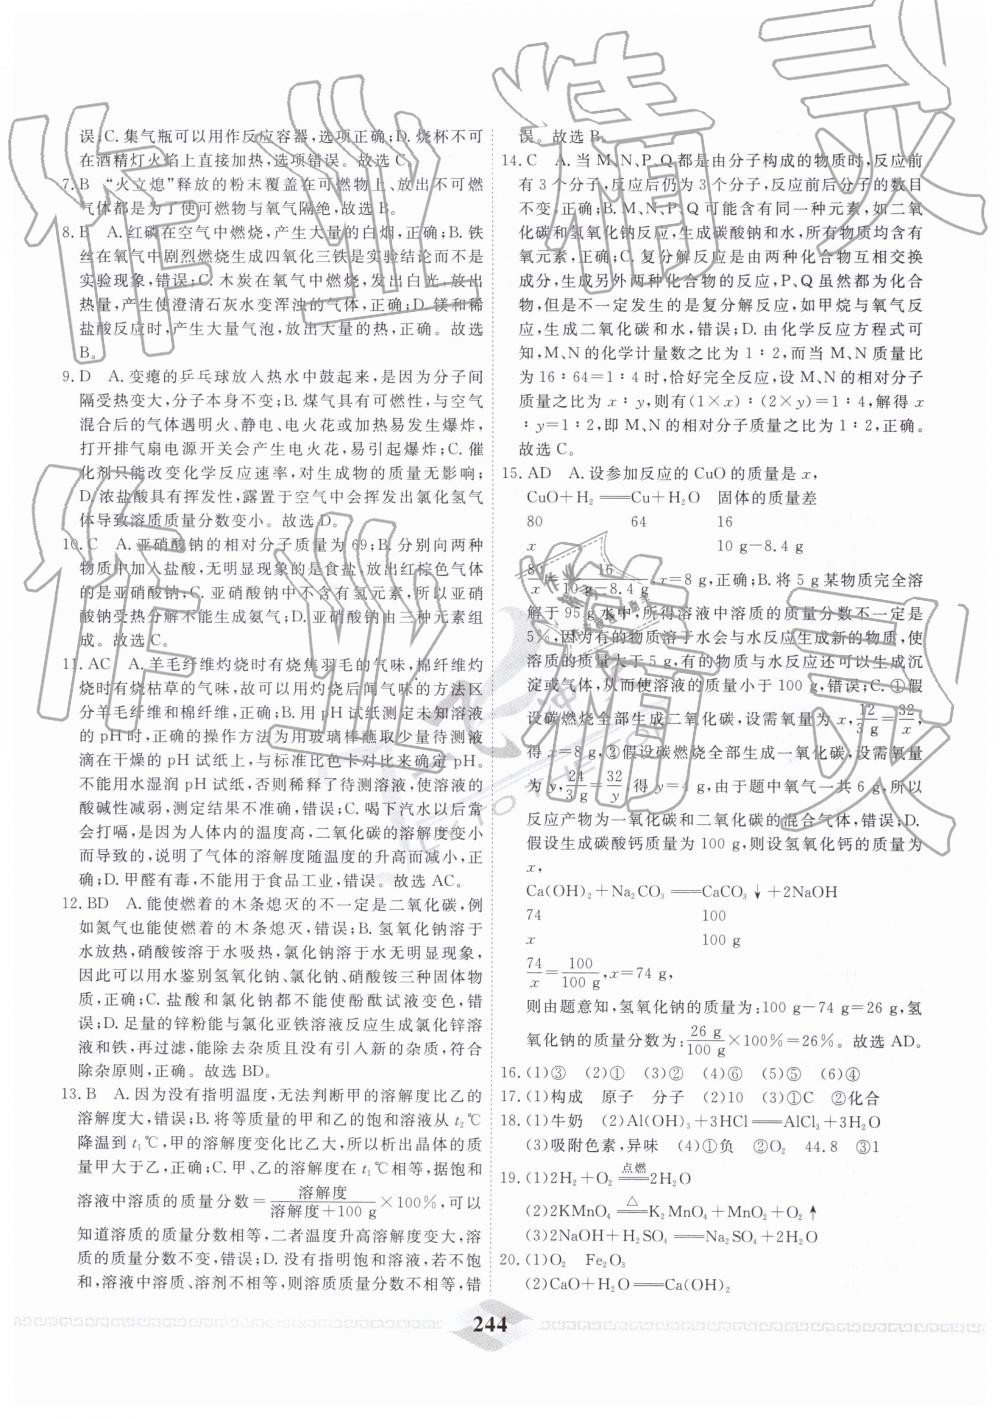 误;C.集气瓶可以用作反应容器,选项正确;D.烧杯不可
在酒精灯火焰上直接加热,选项错误。故选C。
7.B “火立熄”释放的粉末覆盖在可燃物上、放出不可燃
气体都是为了使可燃物与氧气隔绝,故选B。
8.B A.红磷在空气中燃烧,产生大量的白烟,正确;B.铁
丝在氧气中剧烈燃烧生成四氧化三铁是实验结论而不是
实验现象,错误;C.木炭在氧气中燃烧,发出白光,放出
热量,产生使澄清石灰水变浑浊的气体,正确;D.镁和稀
盐酸反应时,产生大量气泡,放出大量的热,正确。故选
B。
9.D A.变瘪的乒乓球放入热水中鼓起来,是因为分子间
隔受热变大,分子本身不变;B.煤气具有可燃性,与空气
混合后的气体遇明火、静电、电火花或加热易发生爆炸,
打开排气扇电源开关会产生电火花,易引起爆炸;C.催
化剂只能改变化学反应速率,对生成物的质量无影响;
D.浓盐酸具有挥发性,露置于空气中会挥发出氯化氢气
体导致溶质质量分数变小。故选D。
10.C A.亚硝酸钠的相对分子质量为69;B.分别向两种
物质中加入盐酸,无明显现象的是食盐,放出红棕色气体
的是亚硝酸钠;C.亚硝酸钠中不含有氢元素,所以亚硝
酸钠受热分解不能生成氨气;D.亚硝酸钠由三种元素组
成。故选C。
11.AC A.羊毛纤维灼烧时有烧焦羽毛的气味,棉纤维灼
烧时有烧枯草的气味,故可以用灼烧后闻气味的方法区
分羊毛纤维和棉纤维,正确;B.用pH试纸测定未知溶液
的pH时,正确的操作方法为用玻璃棒蘸取少量待测液
滴在干燥的pH试纸上,与标准比色卡对比来确定pH。
不能用水湿润pH试纸,否则稀释了待测溶液,使溶液的
酸碱性减弱,测定结果不准确,错误;C.喝了汽水以后常
会打嗝,是因为人体内的温度高,二氧化碳的溶解度变小
而导致的,说明了气体的溶解度随温度的升高而减小,正
确;D.甲醛有毒,不能用于食品工业,错误。故选AC。
12.BD A.能使燃着的木条熄灭的不一定是二氧化碳,例
如氮气也能使燃着的木条熄灭,错误;B.氢氧化钠溶于
水放热,硝酸铵溶于水吸热,氯化钠溶于水无明显现象,
因此可以用水鉴别氢氧化钠、氯化钠、硝酸铵三种固体物
质,正确;C.盐酸和氯化钠都不能使酚酞试液变色,错
误;D.足量的锌粉能与氯化亚铁溶液反应生成氯化锌溶
液和铁,再过滤,能除去杂质且没有引入新的杂质,符合
除杂原则,正确。故选BD。
13.B A.因为没有指明温度,无法判断甲的溶解度比乙的
溶解度大,错误;B.将等质量的甲和乙的饱和溶液从t₂℃
降温到t₁℃,甲的溶解度变化比乙大,所以析出晶体的质
量甲大于乙,正确;C.甲、乙的溶解度在t℃相等,据饱和
溶液中溶质的质量分数=溶解度/溶解度+100 g×100%,可以
知道溶质的质量分数相等,二者温度升高溶解度变大,溶
质的质量分数不变,错误;D.没有指明饱和溶液,若不饱
和,溶液中溶质、溶剂不相等,则溶质质量分数不相等,错
误。故选B。
14.C A.当M、N、P、Q都是由分子构成的物质时,反应前
有3个分子,反应后仍为3个分子,反应前后分子的数目
不变,正确;B.M、N、P、Q可能含有同一种元素,如二氧
化碳和氢氧化钠反应,生成碳酸钠和水,所有物质均含有
氧元素,正确;C.复分解反应是由两种化合物互相交换
成分,生成另外两种化合物的反应,P、Q虽然都为化合
物,但是不一定发生的是复分解反应,如甲烷与氧气反
应,生成二氧化碳和水,错误;D.由化学反应方程式可
知,M、N的化学计量数之比为1∶2,而当M、N质量比
为16∶64=1∶4时,恰好完全反应,设M、N的相对分子
质量之比为x∶y,则有(1×x)∶(2×y)=1∶4,解得x
∶y=1∶2,即M、N的相对分子质量之比为1∶2,正确。
故选C。
15.AD A.设参加反应的CuO的质量是x,
CuO+H₂══Cu+H₂O 固体的质量差
80 64 16
x 10 g-8.4 g
80/x=16/10 g-8.4 g,x=8 g,正确;B.将5 g某物质完全溶
解于95 g水中,所得溶液中溶质的质量分数不一定是
5%,因为有的物质溶于水会与水反应生成新的物质,使
溶质的质量大于5 g,有的物质与水反应还可以生成沉
淀或气体,从而使溶液的质量小于100 g,错误;C.①假
设碳燃烧全部生成二氧化碳,设需氧量为x,12/3 g=32/x,
得x=8 g,②假设碳燃烧全部生成一氧化碳,设需氧量
为y,24/3 g=32/y,得y=4 g,由于题中氧气一共6 g,所以
反应产物为一氧化碳和二氧化碳的混合气体,错误;D.
假设生成碳酸钙质量为100 g,则设氢氧化钙的质量为
x,
Ca(OH)₂+Na₂CO₃══CaCO₃↓+2NaOH
74 100
x 100 g
74/x=100/100 g,x=74 g,
则由题意知,氢氧化钠的质量为:100 g-74 g=26 g,氢
氧化钠的质量分数为:26 g/100 g×100%=26%。故选AD。
16.(1)③ (2)⑥ (3)① (4)⑦ (5)② (6)④
17.(1)构成 原子 分子 (2)10 (3)①C ②化合
18.(1)牛奶 (2)Al(OH)₃+3HCl══AlCl₃+3H₂O
(3)吸附色素,异味 (4)①负 ②O₂ 44.8 ③1
19.(1)2H₂+O₂点燃══2H₂O
(2)2KMnO₄△══K₂MnO₄+MnO₂+O₂↑
(3)2NaOH+H₂SO₄══Na₂SO₄+2H₂O
20.(1)O₂ Fe₂O₃
(2)CaO+H₂O══Ca(OH)₂
244
作业精灵
作业精灵